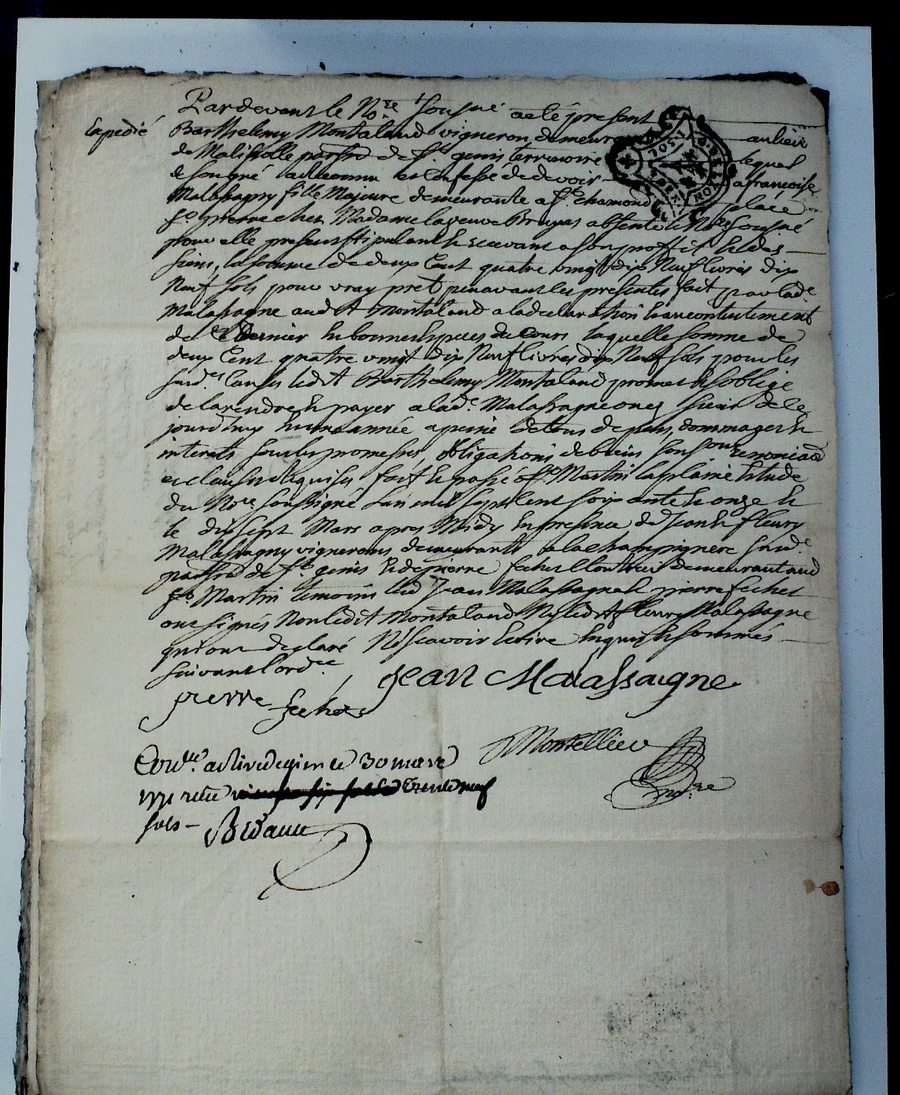 Pardevant le No.re sousné a eté present
Expedié
Barthelemy Montaland vigneron demeurant au lieu
de Malissolle parsse de St genis terrenoire lequel
de son gré a reconnu et confessé de devoir a françoise
Malassagny fille Majeure demeurante a St chamond place
St pierre chez Madame la veuve Bruyas absente le No.re sousné
pour elle present stipulant et recevant a son proffit et des
siens, la somme de deux Cent quatre vingt dix Neuf livres dix
Neuf sols pour vray pret peravant les presentes fait par lad.e
Malassagne aud.t Montaland a la declaration et an contentement
de ce dernier en bonnes especes de cours laquelle somme de
deux Cent quatre vingt dix Neuf livres dix Neuf sols pour les
susd.es causes ledit Barthelemy Montaland promet et s'oblige
de la rendre et payer a lad.e Malassagne ou es siens de ce
jourdhuy en une année a peine de tous depens, dommages et
interets sous les promesses, obligations de biens
et clauses requises fait et passé a St Martin la plaine Etude
du No.re soussigné l'an mil sept cent soixante et onze et
le dix sept Mars apres Midy en presence de Jean et fleury
Malassagny vignerons demeurants a la champignere susd.e
parsse de St genis et de pierre fechet demeurant aud.
St Martin temoins led. Jean Malassagne et pierre fechet
ont signés Non ledit Montaland Ni led.t fleury Malassagne
qui ont declaré Ne scavoir Ecrire enquis et sommés
suivant l'ord.ce
Jean Malassaigne
pierre fechet
Montellier
no.re
Con.lé a Rivedegier le 30 mars
1771 reçu trente neuf
sols